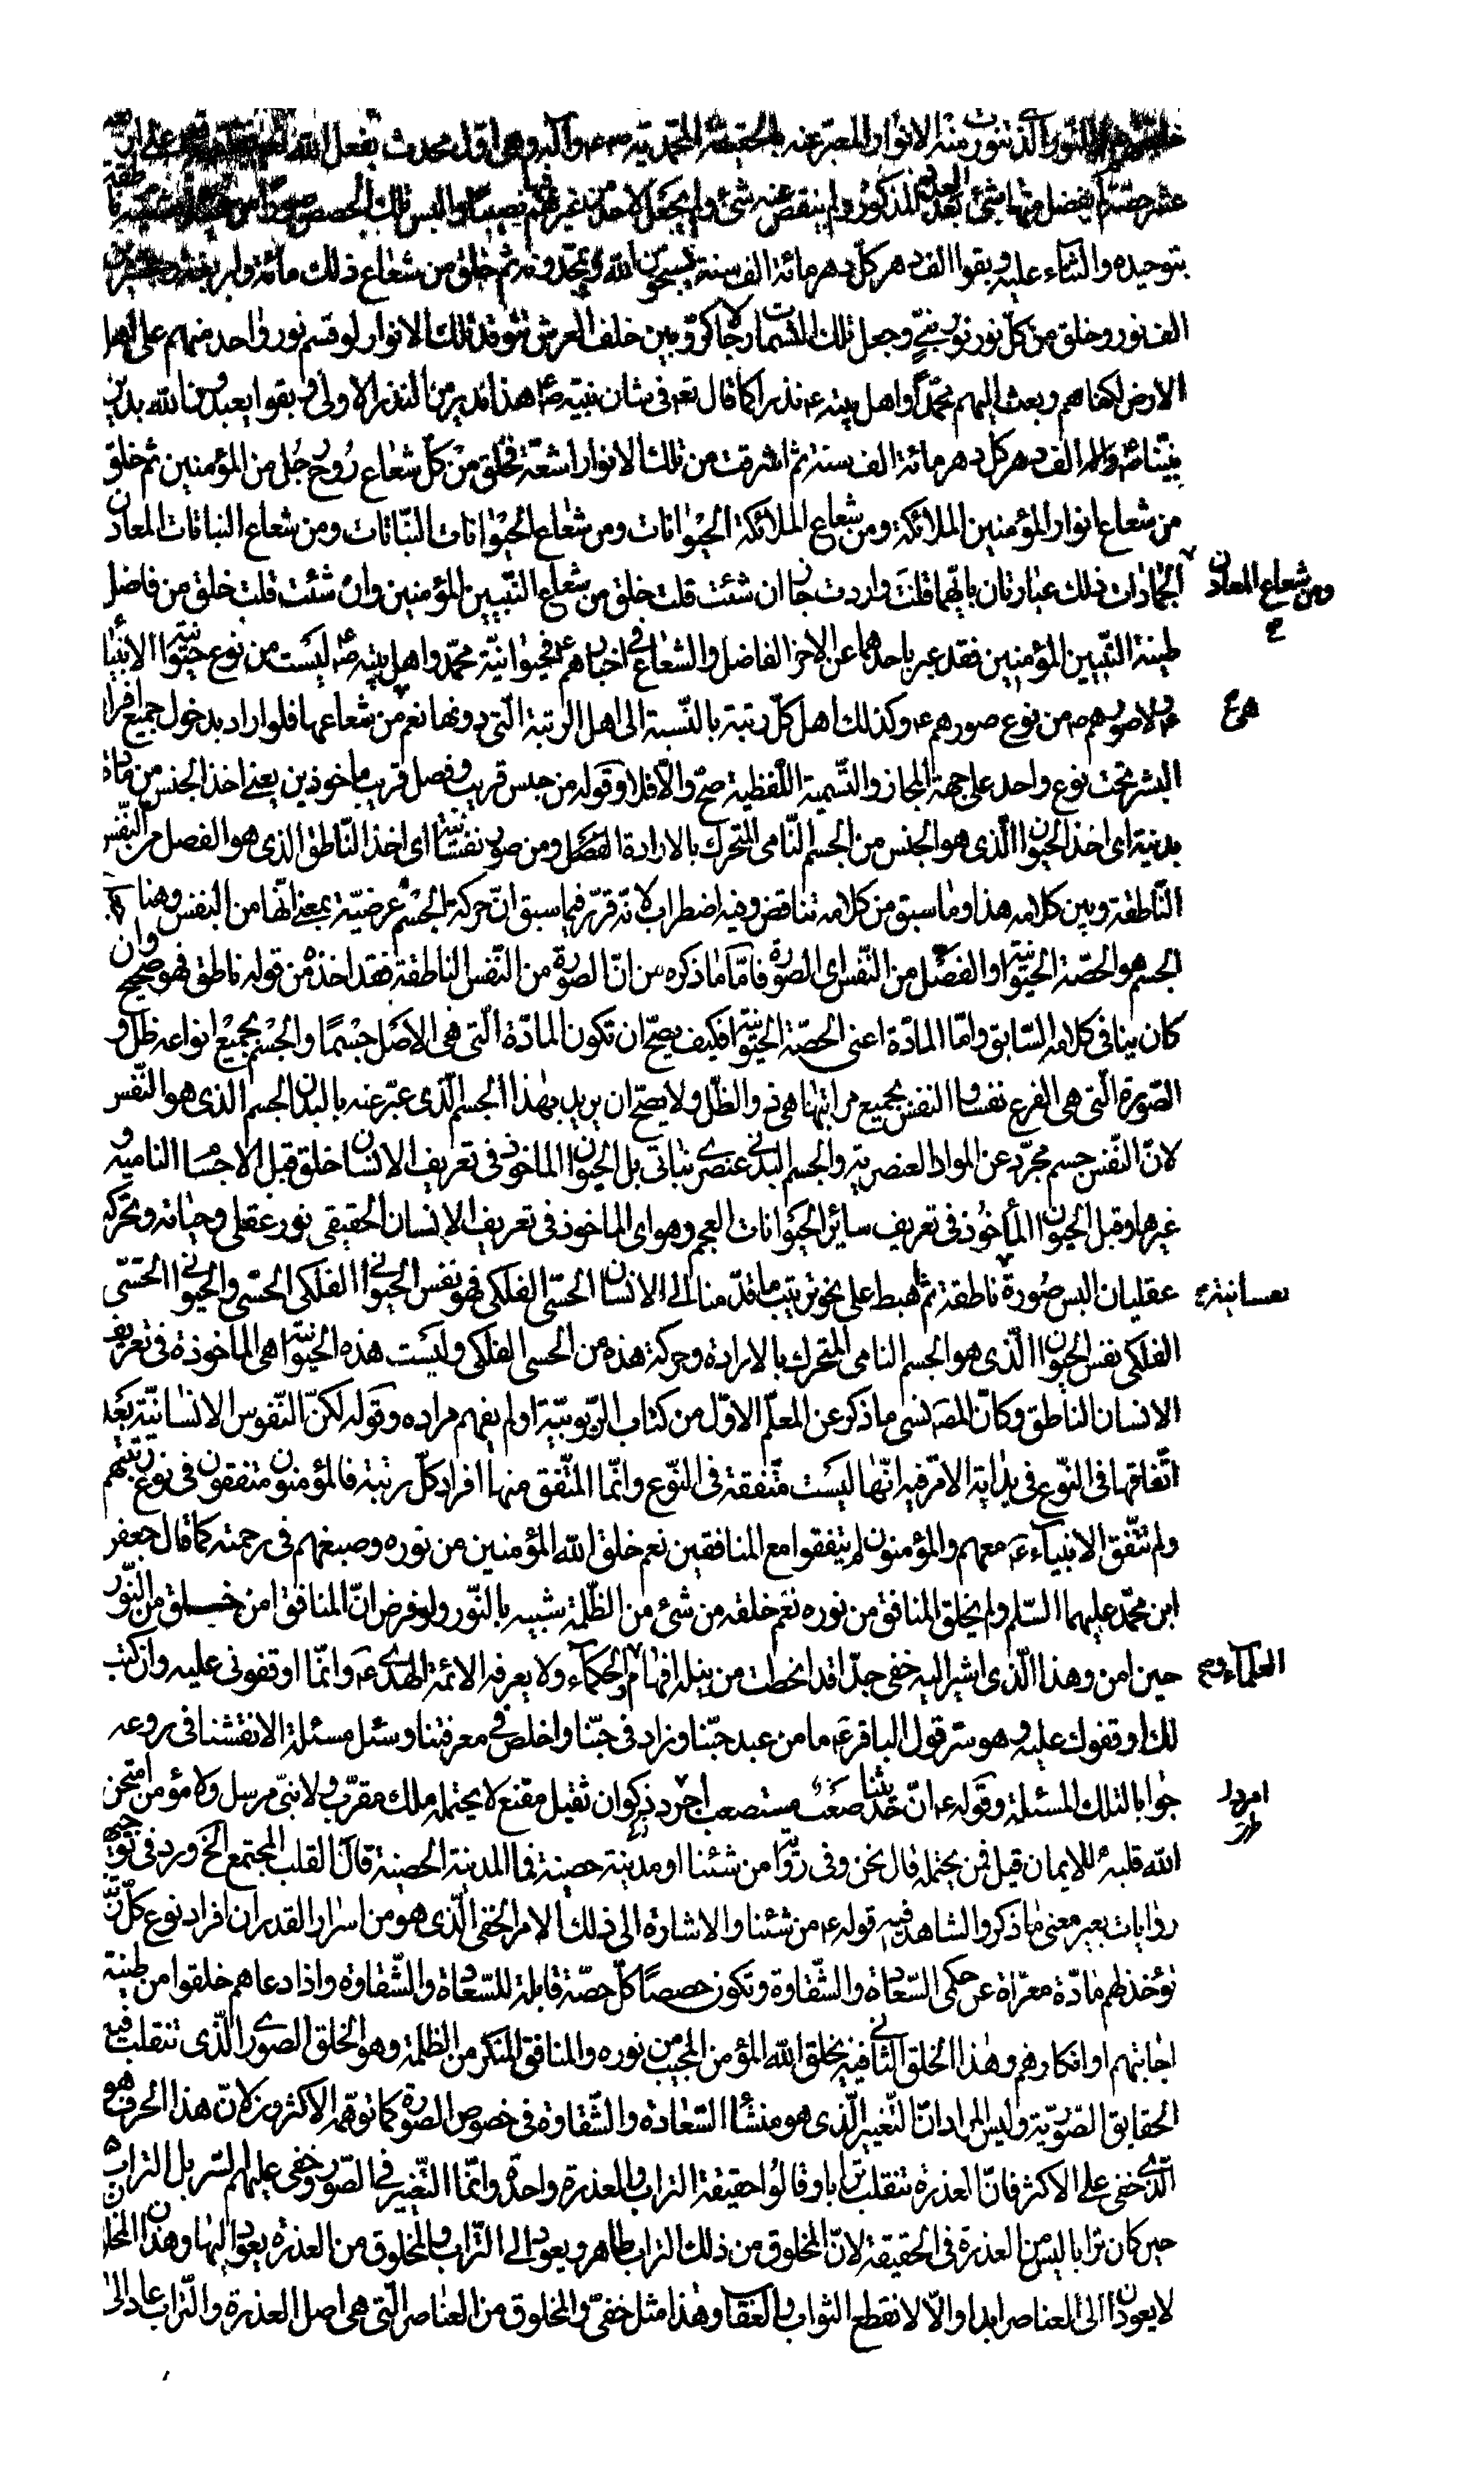 النور الذي تنورت منه الانوار المعبر عنه بالحقيقة المحمدية ص ع وآله وهي اول محدث بفعل الله
عشر حصة لم يفضل منها شئ بعد العدة المذكور ولم ينقص عنه شئ ولم يجعل لاحد من غيرهم فيها نصيبا والبس تلك الحصص
بتوحيده والثناء عليه وبقوا الف دهر كل دهر مائة الف سنة يسبحون الله ويمجدونه ثم خلق من شعاع ذلك مائة واربعة وعشرين
الف نور وخلق من كل نور نور نبي وجعل تلك المسمات رجالا كروبيين خلف العرش تتوقد تلك الانوار لو قسم نور واحد منهم على اهل
الارض لكفاهم وبعث اليهم محمدا واهل بيته ع نذرا كما قال تع في شان نبيه ص ع هذا نذير من النذر الاولى وبقوا يعبدون الله بدين
نبينا ص واله الف دهر كل دهر مائة الف سنة ثم اشرقت من تلك الانوار اشعة فخلق من كل شعاع روح رجل من المؤمنين ثم خلق
من شعاع انوار المؤمنين الملائكة ومن شعاع الملائكة الحيوانات ومن شعاع الحيوانات النباتات ومن شعاع النباتات المعادن
ومن شعاع المعادن ح
الجمادات ذلك عبارتان بايهما قلت واردت جاز ان شئت قلت خلق من شعاع النبيين المؤمنين وان شئت قلت خلق من فاضل
طينة النبيين المؤمنين فقد عبر باحدهما عن الاخر الفاضل والشعاع في اخبارهم ع فحيوانية محمد واهل بيته ص ع ليست من نوع حيوانية الانبياء
ع ولا صورهم ص من نوع صورهم ع وكذلك اهل كل رتبة بالنسبة الى اهل الرتبة التي دونها نعم من شعاعها فلو اراد بدخول جميع افراد
هي ع
البشر تحت نوع واحد على جهة المجاز والتسمية اللفظية صح والا فلا وقوله من جنس قريب وفصل قريب ماخوذين يعني اخذ الجنس من مادة
بدنية اي اخذ الحيوان الذي هو الجنس من الجسم النامي المتحرك بالارادة الفصل ومن صورة نفسانية اي اخذ الناطق الذي هو الفصل من النفس
الناطقة وبين كلامه هذا وما سبق من كلامه تناقض وفيه اضطراب لانه قرر فيما سبق ان حركة الجسم عرضية بمعنى انها من النفس وهنا
الجسم هو الحصة الحيوانية او الفصل من النفس اي الصورة فاما ما ذكره من ان الصورة من النفس الناطقة فقد اخذه من قوله ناطق فهو صحيح وان
كان ينافي كلامه السابق واما المادة اعني الحصة الحيوانية فكيف يصح ان تكون المادة التي هي الاصل جسما والجسم بجميع انواعه ظل و
الصورة التي هي الفرع نفسا والنفس بجميع مراتبها هي ذو الظل ولا يصح ان يريد بهذا الجسم الذي عبر عنه بالبدن الجسم الذي هو النفس
لان النفس جسم مجرد عن المواد العنصرية والجسم البدني عنصري نباتي بل الحيوان الماخوذ في تعريف الانسان خلق قبل الاجسام النامية و
غيرها وقبل الحيوان المأخوذ في تعريف سائر الحيوانات العجم وهو اي الماخوذ في تعريف الانسان الحقيقي نور عقلي وحياته وتحركه
عقليان البس صورة ناطقة ثم هبط على نحو ترتيب ما قدمنا الى الانسان الحسي الفلكي فهو نفس الحيواني الفلكي الحسي والحيواني الحسي
نفسانية ح
الفلكي نفس الحيوان الذي هو الجسم النامي المتحرك بالارادة وحركة هذه من الحسي الفلكي وليست هذه الحيوانية هي الماخوذة في تعريف
الانسان الناطق وكان المص نسي ما ذكر عن المعلم الاول من كتاب الربوبية او لم يفهم مراده وقوله لكن النفوس الانسانية بعد
اتفاقها في النوع في بداية الامر فيه انها ليست متفقة في النوع وانما المتفق منها افراد كل رتبة فالمؤمنون متفقون في نوع رتبتهم
ولم تتفق الانبياء ع معهم والمؤمنون لم يتفقوا مع المنافقين نعم خلق الله المؤمنين من نوره وصبغهم في رحمته كما قال جعفر
ابن محمد عليهما السلم ولم يخلق المنافق من نوره نعم خلقه من شئ من الظلمة شبيه بالنور ولو فرض ان المنافق امن خلق من النور
حين امن وهذا الذي اشير اليه خفي جدا قد انحطت من نيله افهام الحكماء ولا يعرفه الا ائمة الهدى ع وانما اوقفوني عليه وان كتب
العلماء و ح
لك اوقفوك عليه وهو سر قول الباقر ع ما من عبد حبنا وزاد في حبنا واخلص في معرفتنا وسئل مسئلة الا نفثنا في روعه
جوابا لتلك المسئلة وقوله ع ان حديثنا صعب مستصعب اجرد ذكوان ثقيل مقنع لا يحتمله ملك مقرب ولا نبي مرسل ولا مؤمن امتحن
الله قلبه للايمان قيل فمن يحتمله قال نحن وفي رواية من شئنا او مدينة حصينة فما المدينة الحصينة قال القلب المجتمع الخ ورد في توجيه
روايات بعير معنى ما ذكر والشاهد فيه قوله ع من شئنا والاشارة الى ذلك الامر الخفي الذي هو من اسرار القدر ان افراد نوع كل
تؤخذ لهم مادة معراة عن حكمي السعادة والشقاوة وتكون حصصا كل حصة قابلة للسعادة والشقاوة واذا دعاهم خلقوا من طينة
اجابتهم او انكارهم وهذا الخلق الثاني فيه يخلق الله المؤمن المجيب من نوره والمنافق المنكر من الظلمة وهو الخلق الصوري الذي تنقلب فيه
الحقايق الصورية وليس المراد ان التغيير الذي هو منشأ السعادة والشقاوة في خصوص الصورة كما توهمه الاكثرون لان هذا الحرف هو
الذي خفي على الاكثر فان العذرة تنقلب ترابا وقالوا حقيقة التراب والعذرة واحدة وانما التغيير في الصور وخفي عليهم السر بل التراب
حين كان ترابا ليس من العذرة في الحقيقة لان المخلوق من ذلك التراب طاهر ويعود الى التراب والمخلوق من العذرة يعود اليها وهذان
لا يعودان الى العناصر ابدا والا لانقطع الثواب والعقاب وهذا مثل خفي والمخلوق من العناصر التي هي اصل العذرة والتراب عاد الى